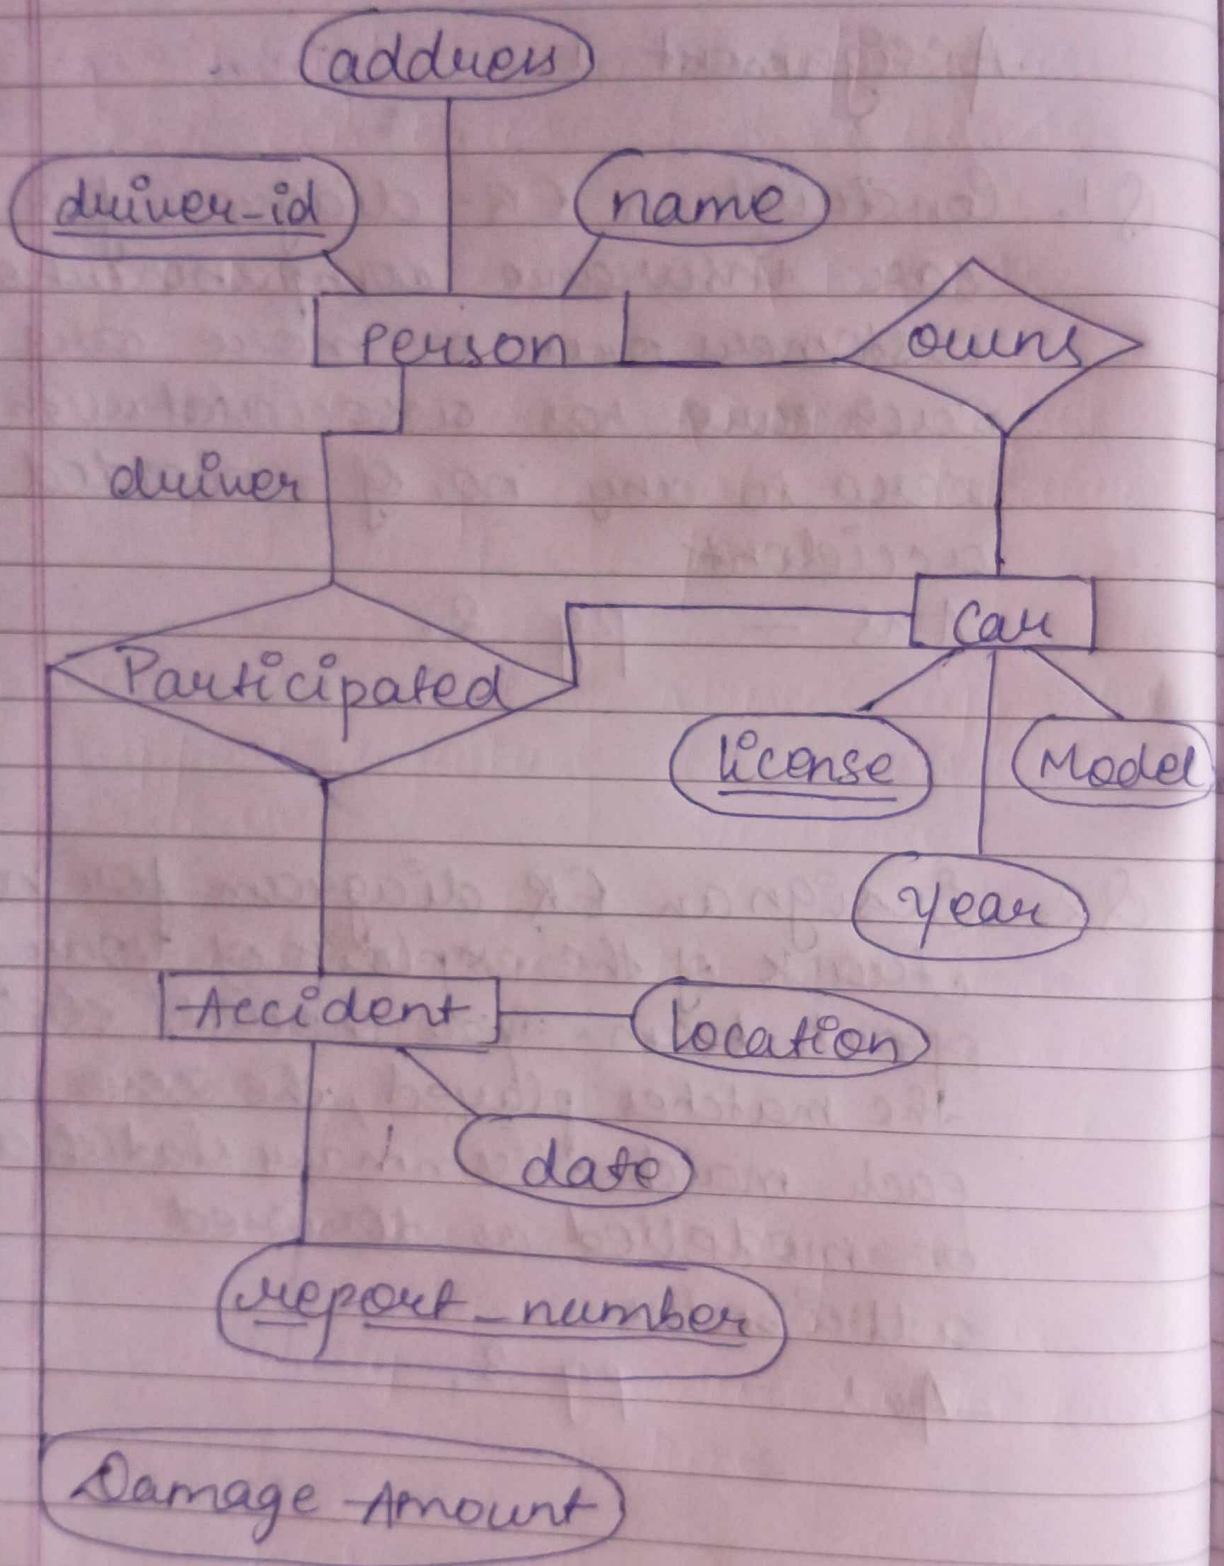 address
driver-id
name
Person
owns
driver
Participated
Car
license
Model
Year
Accident
location
date
report_number
Damage Amount